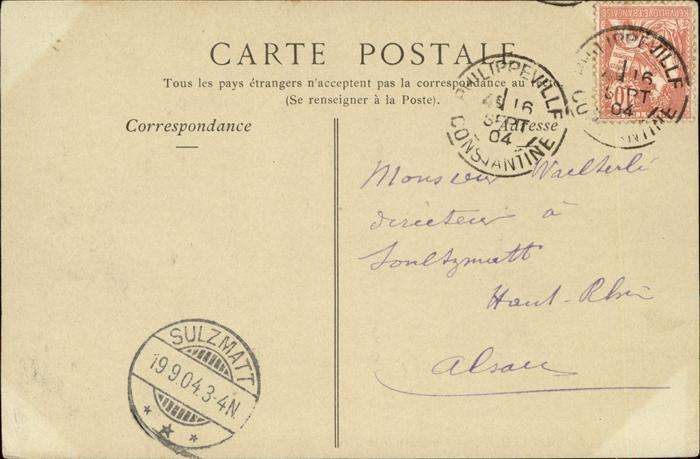 CARTE POSTALE
Tous les pays étrangers n'acceptent pas la correspondance au
(Se renseigner à la Poste).
Correspondance
Adresse
PHILIPPEVILLE
16
SEPT
04
CONSTANTINE
PHILIPPEVILLE
16
SEPT
04
CONSTANTINE
10
Monsieur
directeur à
Soultzmatt
Haut-Rhin
Alsace
SULZMATT
19.9.04.3-4N.